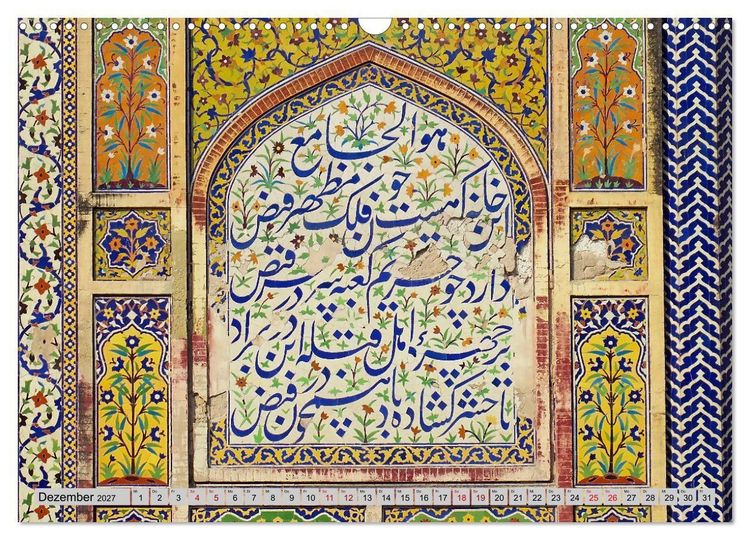 هو الجامع
این خانه که هست چون فلک مظهر فیض
دارد چو حریم کعبه در فیض
بر چهره اهل قبله این در
تا حشر گشاده باد همچون در فیض
Dezember 2027 1 2 3 4 5 6 7 8 9 10 11 12 13 14 15 16 17 18 19 20 21 22 23 24 25 26 27 28 29 30 31